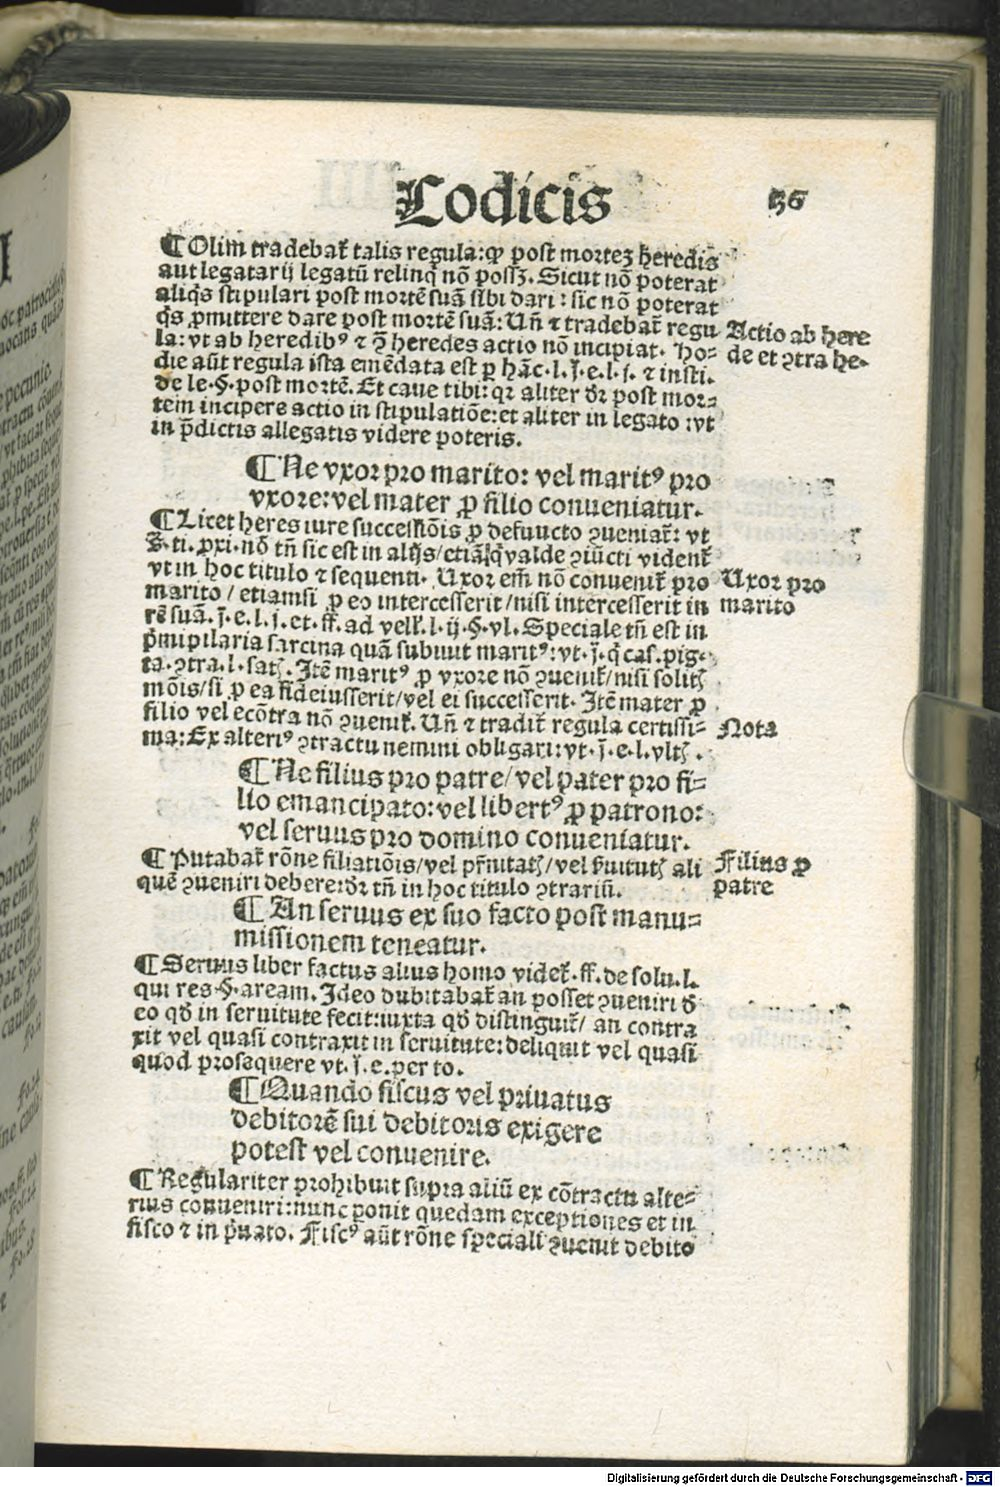 Codicis 56
¶ Olim tradebat̃ talis regula: ꝙ post morteȝ heredis
aut legatarij legatũ relinqͥ nõ possȝ. Sicut nõ poterat
aliqͥs stipulari post mortẽ suã sibi dari: sic nõ poterat
qͥs ꝓmittere dare post mortẽ suã: Uñ ⁊ tradebat̃ regu
la: vt ab heredibꝰ ⁊ ꝯ̃ heredes actio nõ incipiat. Ho-
die aũt regula ista emẽdata est ꝑ hãc. l. j̃. e. l. j. ⁊ insti.
de le. §. post mortẽ. Et caue tibi: qꝛ aliter dr̃ post mor-
tem incipere actio in stipulatiõe: et aliter in legato: vt
in p̃dictis allegatis videre poteris.
Actio ab here
de et ꝯtra he-
¶ Ne vxor pro marito: vel maritꝰ pro
vxore: vel mater ꝓ filio conueniatur.
¶ Licet heres iure successiõis ꝓ defuucto ꝯueniat̃: vt
s̃. ti. ꝓxi. nõ tñ sic est in alijs / etiã qͥ valde ꝯiũcti vident̃
vt in hoc titulo ⁊ sequenti. Uxor em̃ nõ conuenit̃ pro
marito / etiamsi ꝓ eo intercesserit / nisi intercesserit in
rẽ suã. j̃. e. l. j. et. ff. ad vell̃. l. ij. §. vl. Speciale tñ est in
pͥmipilaria sarcina quã subiuit maritꝰ: vt. j̃. q̃ cas. pig-
ta. ꝯtra. l. satꝭ. Itẽ maritꝰ ꝓ vxore nõ ꝯuenit̃ / nisi solutꝭ
mõis / si ꝓ ea fideiusserit / vel ei successerit. Itẽ mater ꝓ
filio vel ecõtra nõ ꝯuenit̃. Uñ ⁊ tradit̃ regula certissi-
ma: Ex alteriꝰ ꝯtractu nemini obligari: vt. j̃. e. l. vltꝭ.
Uxor pro
marito
Nota
¶ Ne filius pro patre / vel pater pro fi-
lio emancipato: vel libertꝰ ꝓ patrono:
vel seruus pro domino conueniatur.
¶ Putabat̃ rõne filiatiõis / vel pr̃nitatꝭ / vel ẜuitutꝭ ali
quẽ ꝯueniri debere: dr̃ tñ in hoc titulo ꝯtrariũ.
Filius ꝓ
patre
¶ An seruus ex suo facto post manu-
missionem teneatur.
¶ Seruus liber factus alius homo videt̃. ff. de solu. l.
qui res §. aream. Ideo dubitabat̃ an posset ꝯueniri ð
eo qð in seruitute fecit: iuxta qð distinguit̃ / an contra
xit vel quasi contraxit in seruitute: deliquit vel quasi
quod prosequere vt. j̃. e. per to.
¶ Quando fiscus vel priuatus
debitorẽ sui debitoris exigere
potest vel conuenire.
¶ Regulariter prohibuit supra aliũ ex cõtractu alte-
rius conueniri: nunc ponit quedam exceptiones et in
fisco ⁊ in pͥuato. Fiscꝰ aũt rõne speciali ꝯuenit debito
Digitalisierung gefördert durch die Deutsche Forschungsgemeinschaft - DFG